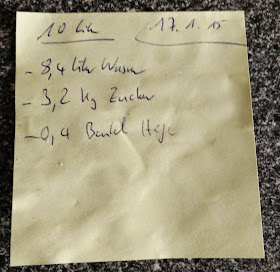 10 Liter 17.1.15
- 8,4 Liter Wasser
- 3,2 Kg Zucker
- 0,4 Beutel Hefe